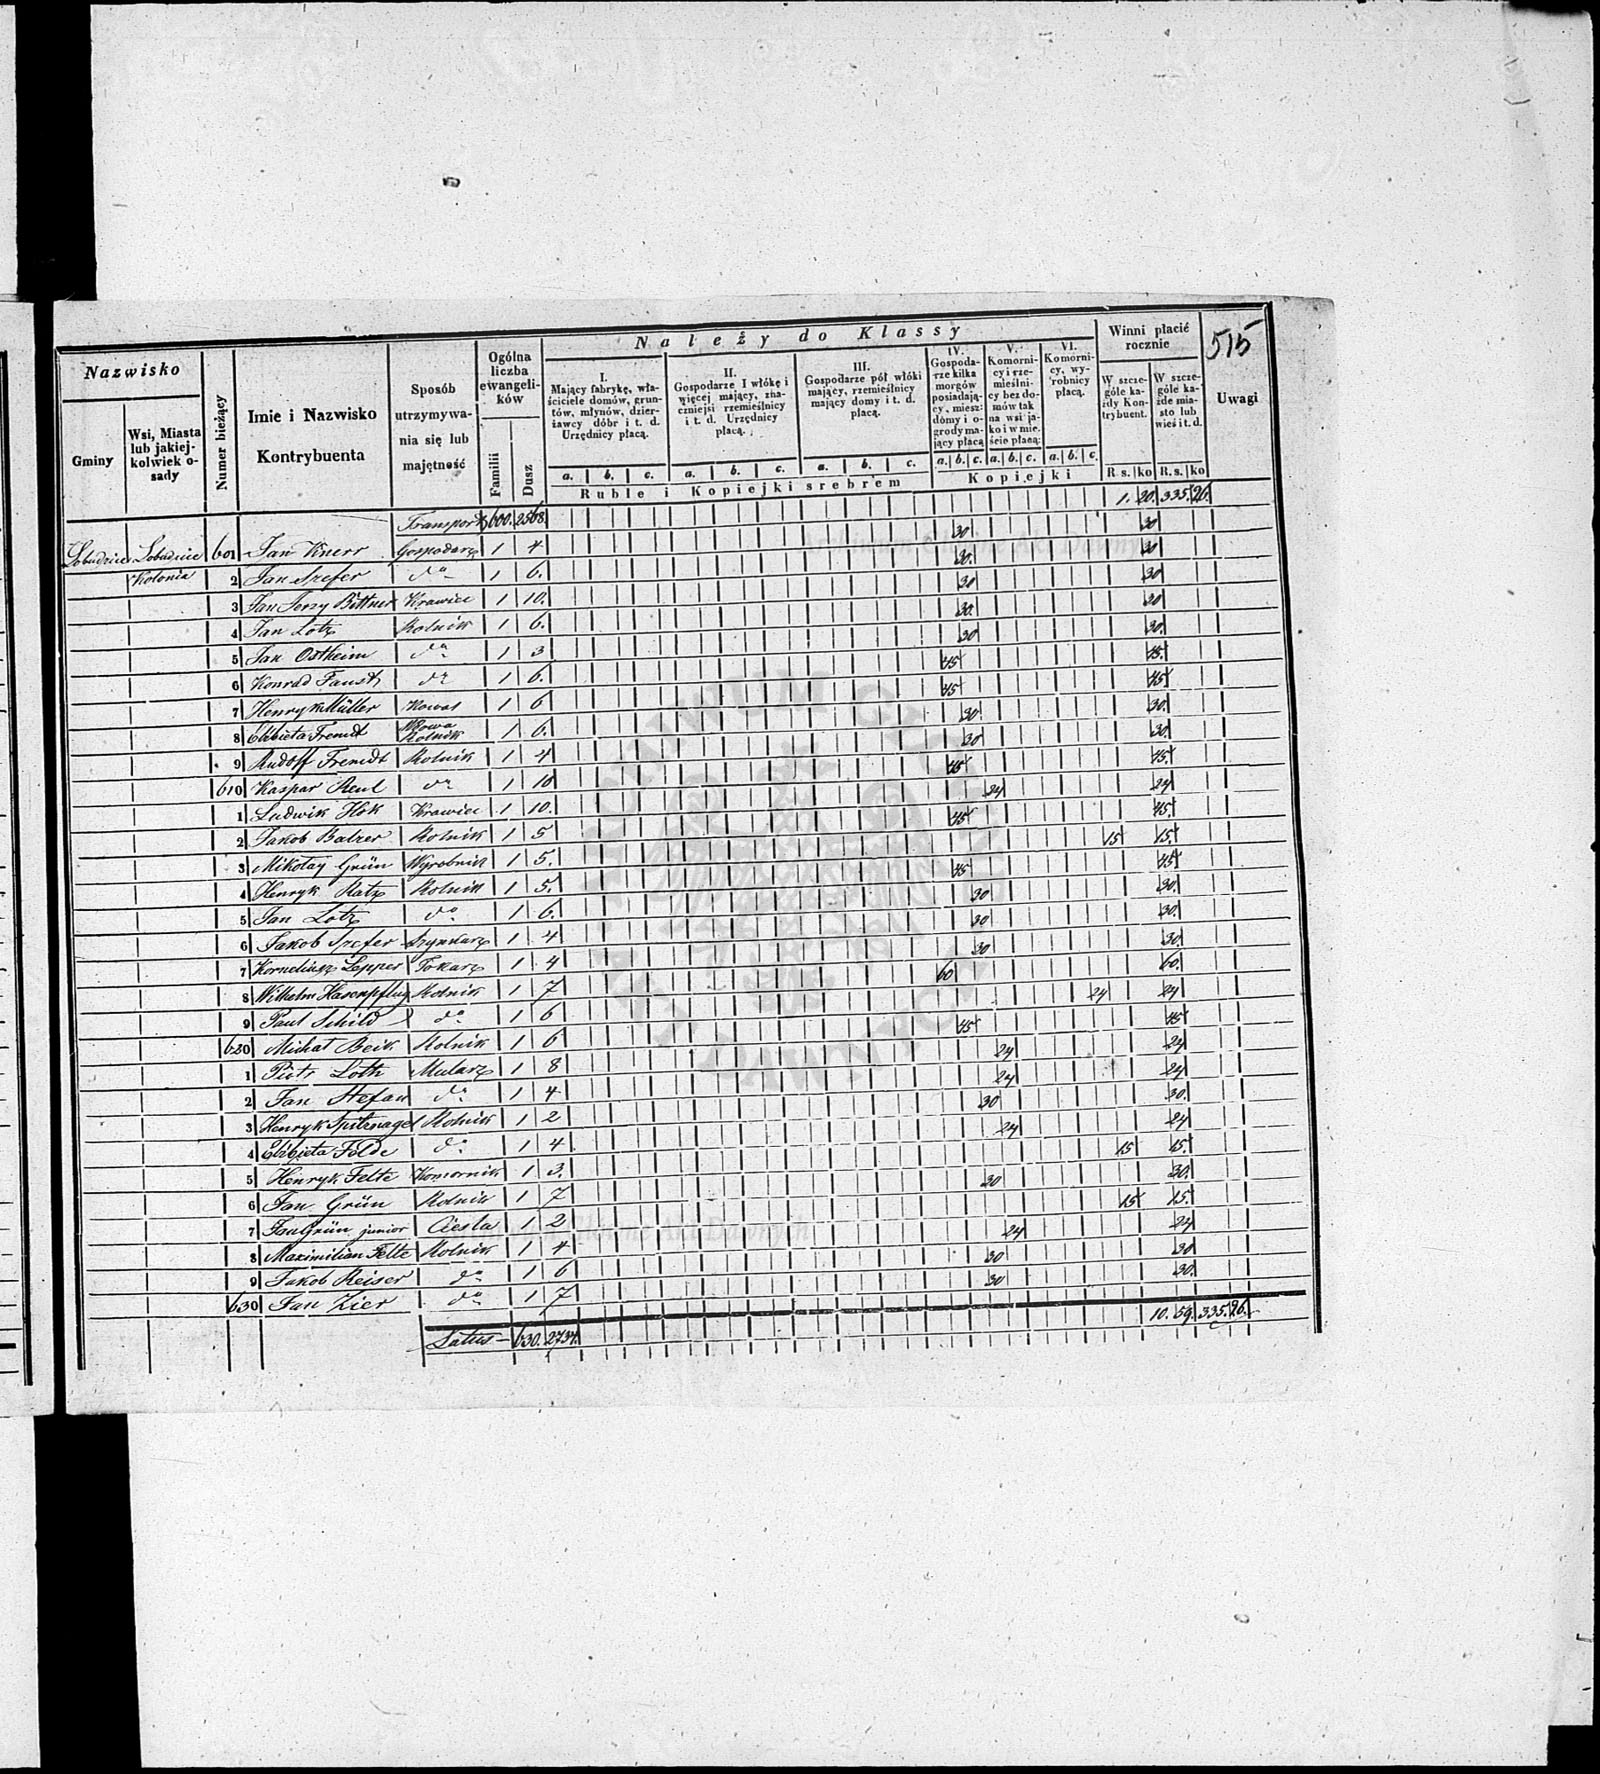 515
Nazwisko
Gminy
Wsi, Miasta lub jakiej-kolwiek o-sady
Numer bieżący
Imie i Nazwisko Kontrybuenta
Sposób utrzymywa-nia się lub majętność
Ogólna liczba ewangeli-ków
Familii
Dusz
Należy do Klassy
I. Mający fabrykę, wła-ściciele domów, grun-tów, młynów, dzier-żawcy dóbr i t. d. Urzędnicy płacą.
II. Gospodarze I włókę i więcej mający, zna-czniejsi rzemieślnicy i t. d. Urzędnicy płacą.
III. Gospodarze pół włóki mający, rzemieślnicy mający domy i t. d. płacą.
IV. Gospoda-rze kilka morgów posiadają-cy, miesz: domy i o-grody ma-jący płacą
V. Komorni-cy i rze-mieślni-cy bez do-mów tak na wsi ja-ko i w mie-ście płacą:
VI. Komorni-cy, wy-robnicy płacą.
a. b. c. a. b. c. a. b. c. a. b. c. a. b. c. a. b. c.
Ruble i Kopiejki srebrem
Kopiejki
Winni płacić rocznie
W szcze-góle ka-żdy Kon-trybuent.
W szcze-góle ka-żde mia-sto lub wieś i t. d.
R. s. ko R. s. ko
Uwagi
Transport 600. 2568. 1. 20. 335. 26.
Łobudzice Łobudzice 601 Jan Knerr Gospodarz 1 4 30 30
Kolonia 2 Jan Szefer do 1 6. 30. 30
3 Jan Jerzy Bittner Krawiec 1 10. 30 30
4 Jan Lotz Rolnik 1 6. 30. 30
5 Jan Ostheim do 1 3 30 30.
6 Konrad Faust do 1 6. 45 45.
7 Henryk Müller Kowal 1 6 45 45
8 Elżbieta Fremdt Wdowa Rolnik 1 6. 30 30.
9 Rudolf Fremdt Rolnik 1 4 30 30.
610 Kaspar Reul do 1 10 45 45.
1 Ludwik Hok Krawiec 1 10. 24 24
2 Jakob Balzer Rolnik 1 5 45 45.
3 Mikołay Grün Wyrobnik 1 5. 15 15.
4 Henryk Katz Rolnik 1 5. 45 45
5 Jan Lotz do 1 6. 30 30.
6 Jakob Szefer Szynkarz 1 4 30 30.
7 Korneliusz Lepper Tokarz 1 4 30 30.
8 Wilhelm Hasenpflug Rolnik 1 7 60 60.
9 Paul Schild do 1 6 24 24
620 Michał Beik Rolnik 1 6 45 45
1 Piotr Loth Mularz 1 8 24 24
2 Jan Stefan do 1 4 24 24
3 Henryk Spitznagel Rolnik 1 2 30 30.
4 Elżbieta Felde do 1 4 24 24
5 Henryk Felte Komornik 1 3. 15 15.
6 Jan Grün Rolnik 1 7 30 30.
7 Jan Grün junior Cieśla 1 2 15 15.
8 Maximilian Felte Rolnik 1 4 24 24
9 Jakob Reiser do 1 6 30 30
630 Jan Zier do 1 7 30 30.
Latus 630. 2734. 10. 59. 335. 26.